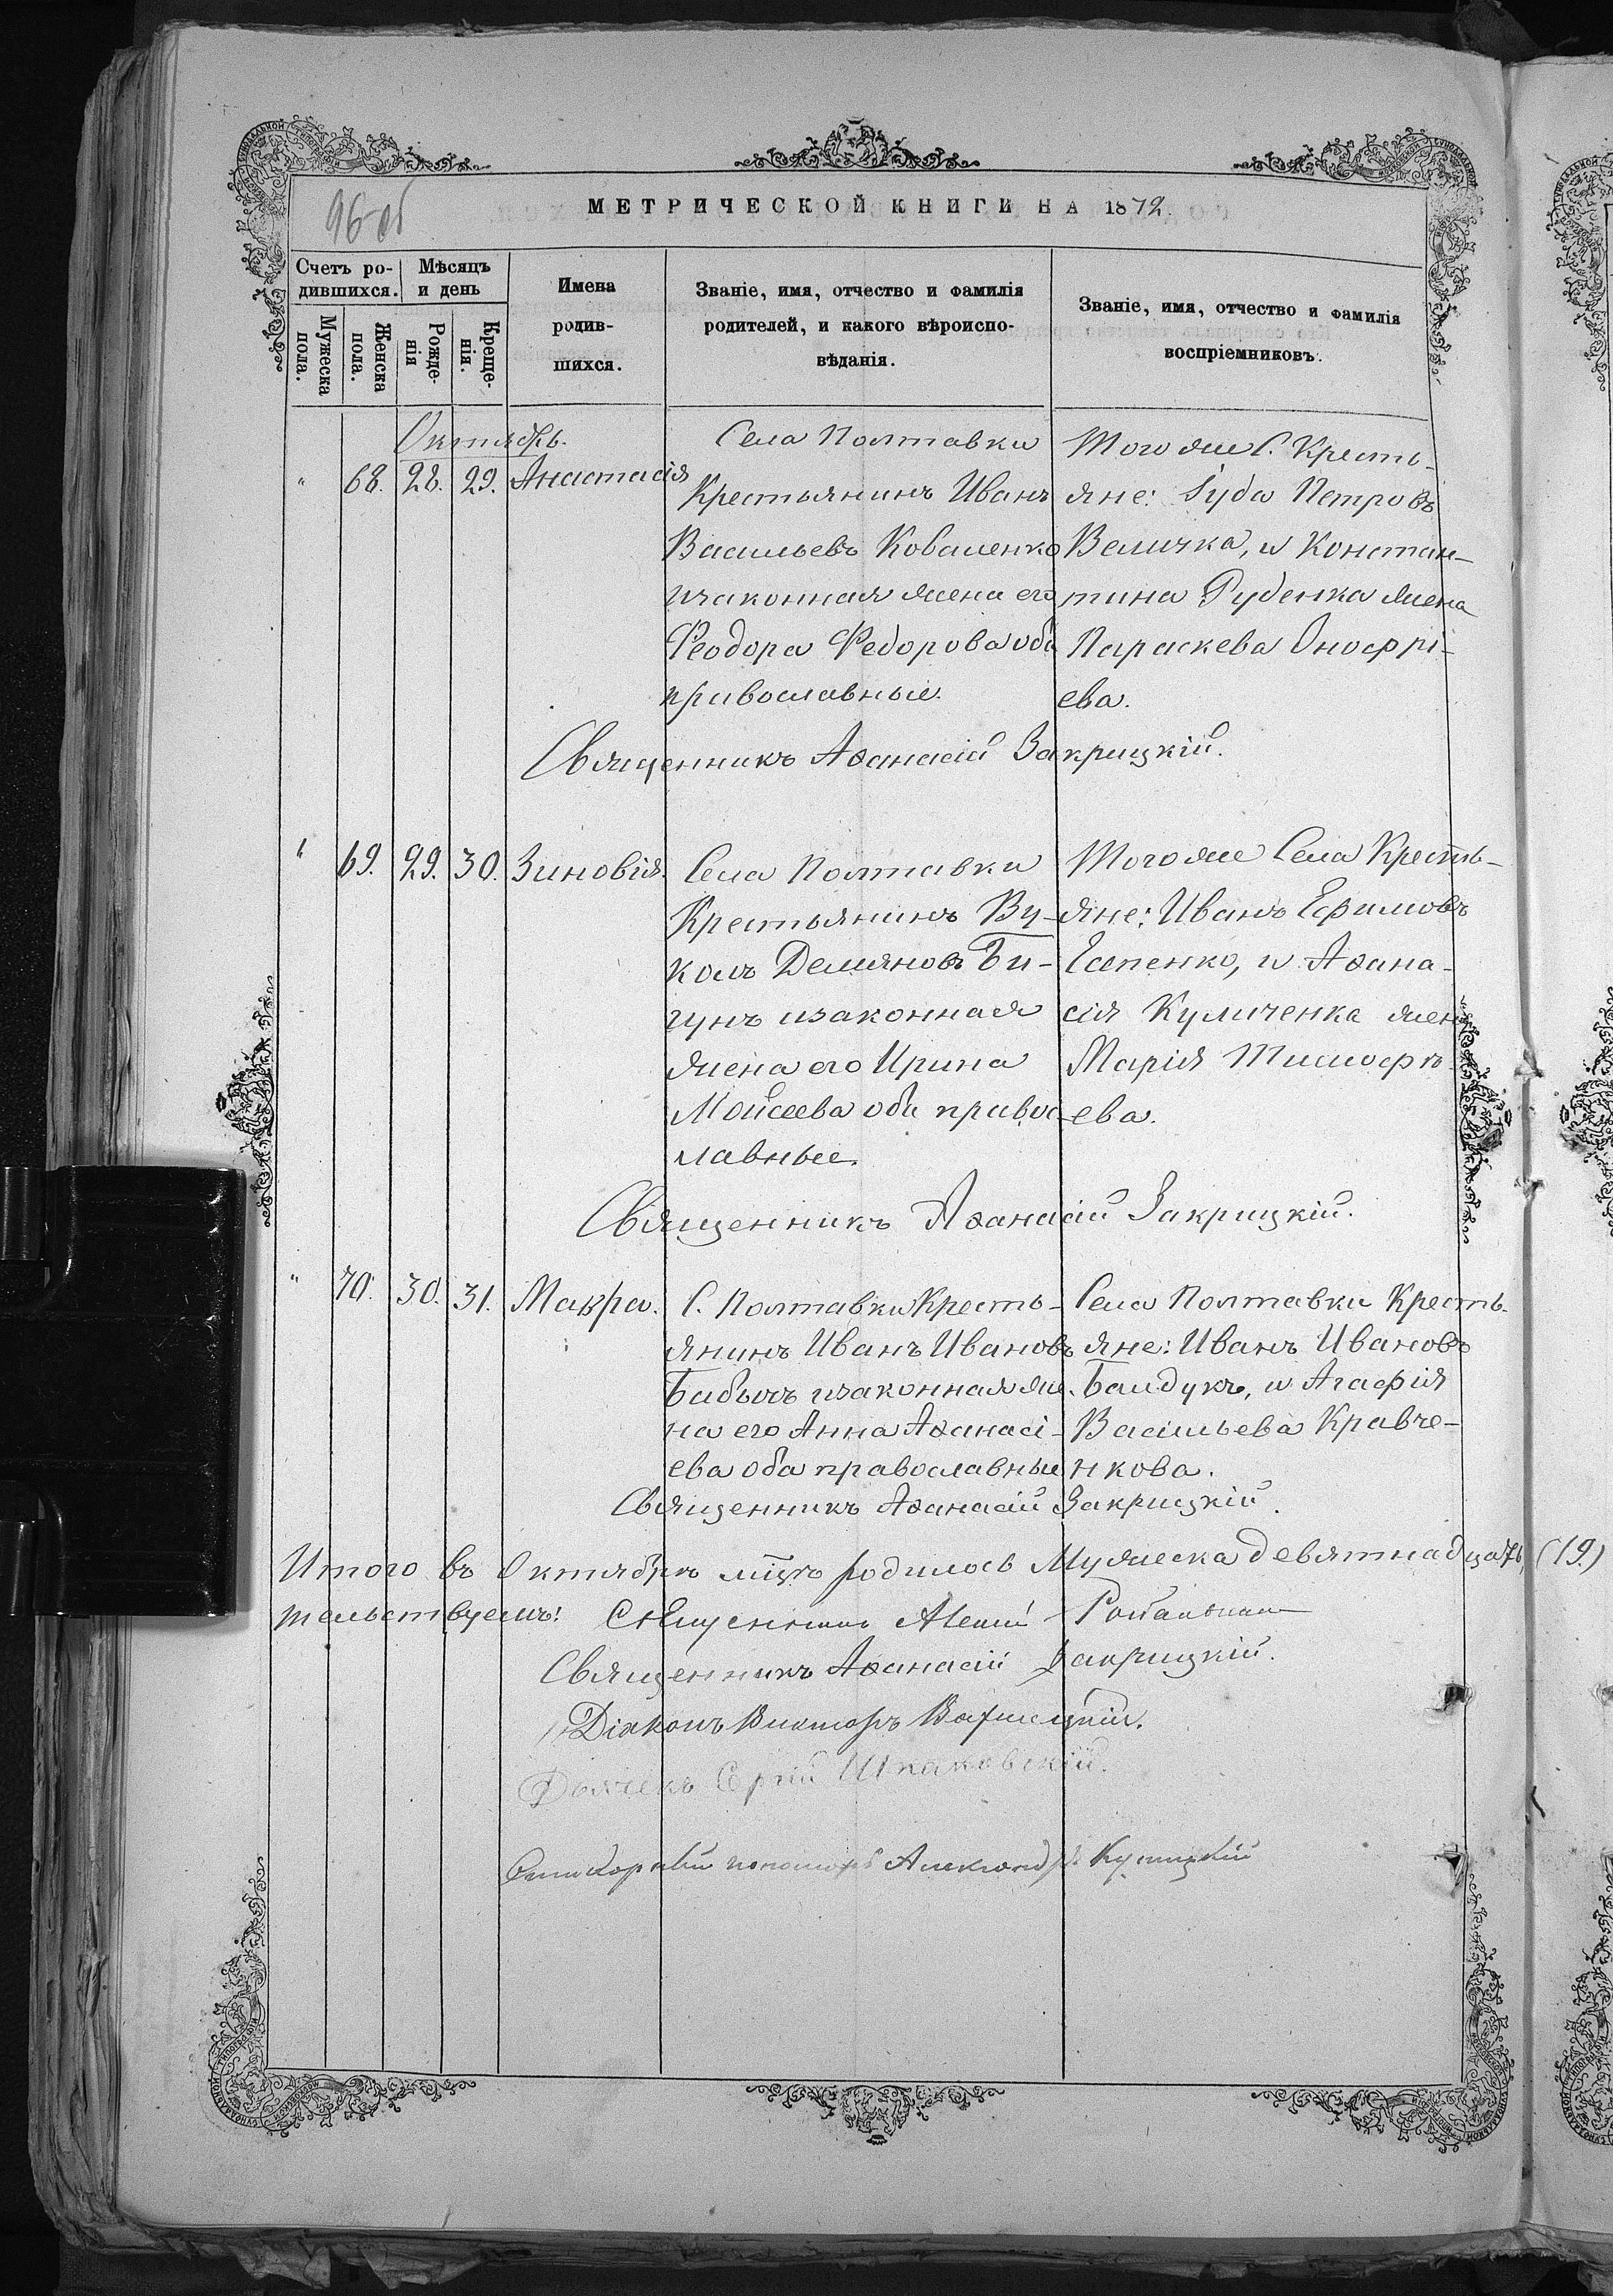 96 об
МЕТРИЧЕСКОЙ КНИГИ НА 1872.
Счетъ родившихся.
Мѣсяцъ и день
Мужеска пола.
Женска пола.
Рожденія
Крещенія.
Имена
родив-
шихся.
Званіе, имя, отчество и фамилія
родителей, и какого вѣроиспо-
вѣданія.
Званіе, имя, отчество и фамилія
воспріемниковъ.
Октябрь.
" 68. 28. 29. Анастасія
Села Полтавки
Крестьянинъ Иванъ
Васильевъ Коваленко
изаконная жена его
Феодора Федорова оба
православные.
Того же С. Кресть-
яне: Іуда Петровъ
Величка, и Констан-
тина Руденка жена
Параскева Онофрі-
ева.
Священникъ Аѳанасій Закрицкій.
" 69. 29. 30. Зиновія.
Села Полтавки
Крестьянинъ Ву-
колъ Демяновъ Би-
гунъ изаконная
жена его Ирина
Моисеева оба правос-
лавные.
Того же Села Кресть-
яне: Иванъ Ефимовъ
Есепенко, и Аѳана-
сія Куличенка жена
Марія Тимофѣ-
ева.
Священникъ Аѳанасій Закрицкій.
" 70. 30. 31. Макра.
С. Полтавки Кресть-
янинъ Иванъ Ивановъ
Бабычъ изаконная же-
на его Анна Аѳанасі-
ева оба православные
Села Полтавки Кресть-
яне: Иванъ Ивановъ
Балдукъ, и Агафія
Васильева Кравче-
нкова.
Священникъ Аѳанасій Закрицкій.
Итого въ Октябрѣ мцѣ родилось Мужеска девятнадцать (19)
тельствуемъ: Священникъ
Священникъ Аѳанасій Закрицкій.
Діаконъ Викторъ
Дьячекъ Сергій Шпаковскій.
пономарь Александръ